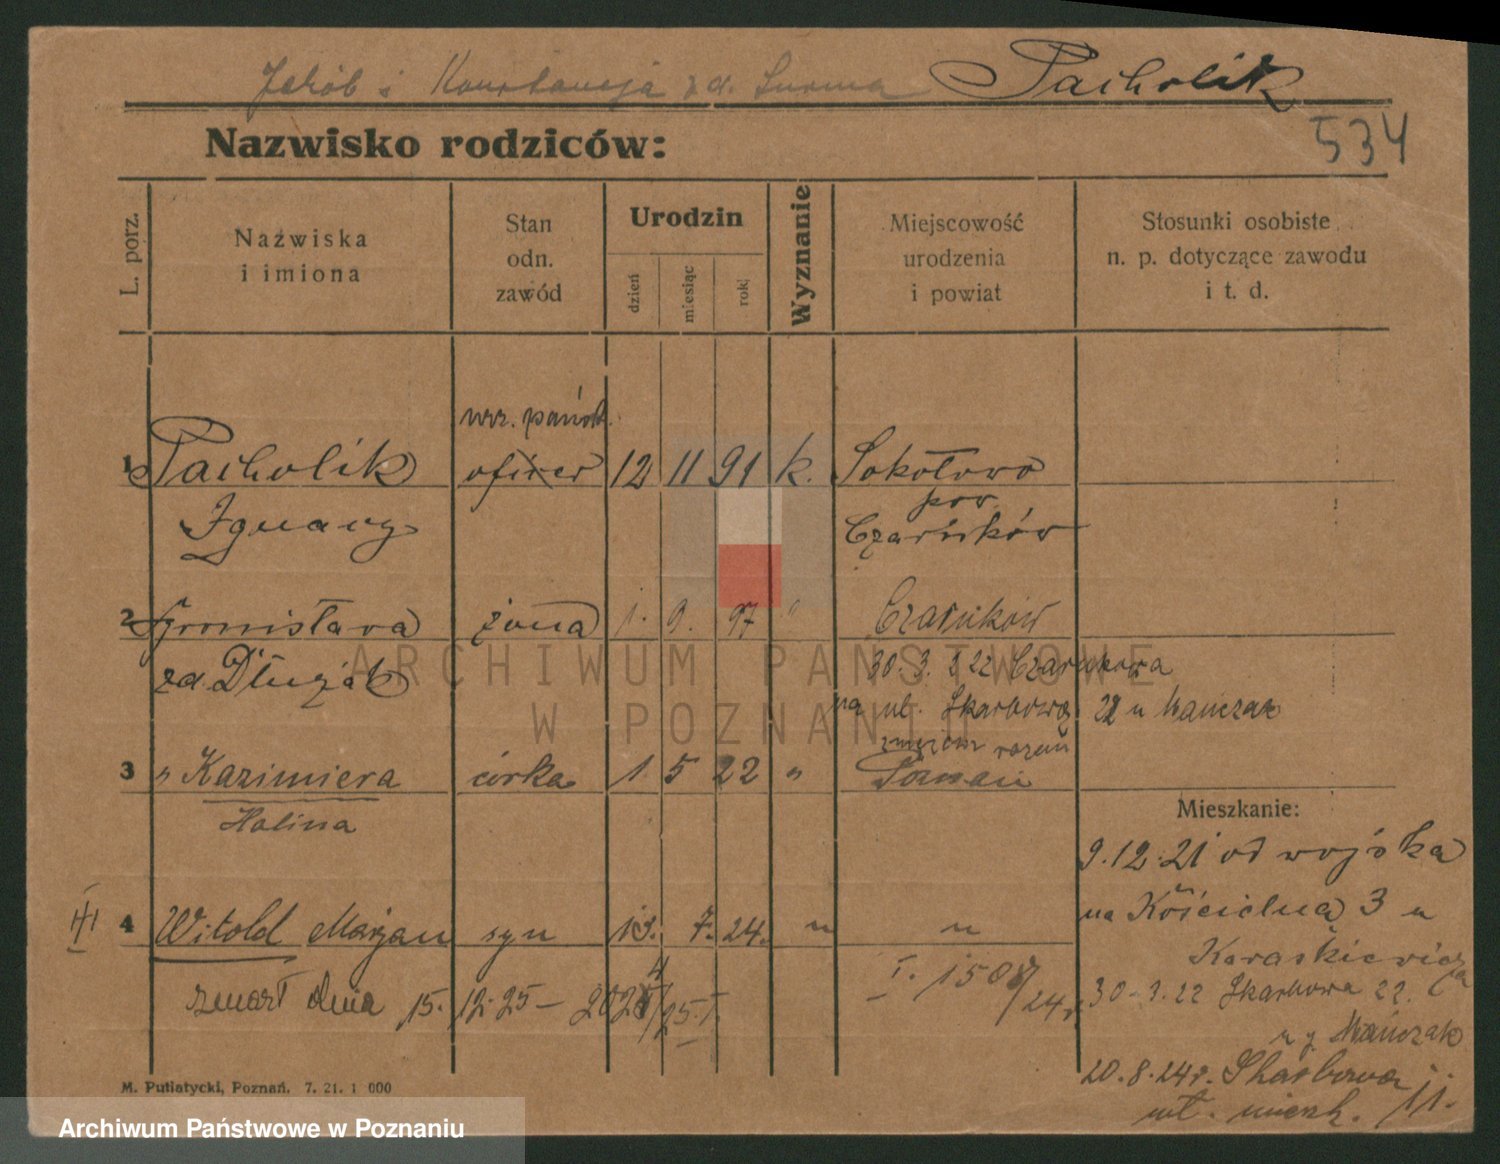 Jakób i Konstancja z d. Surma Pacholik
Nazwisko rodziców:
534
L. porz.
Nazwiska
i imiona
Stan
odn.
zawód
Urodzin
dzień
miesiąc
rok
Wyznanie
Miejscowość
urodzenia
i powiat
Stosunki osobiste
n. p. dotyczące zawodu
i t. d.
urz. państ.
1 Pacholik oficer 12 11 91 k. Sokołowo
pow.
Ignacy Czarnków
2 Bronisława żona 1. 9. 97 " Czarnków
zd. Długiak 30. 3. 22 Czarnkowa
na ul. Skarbową 22 u Mańczak
razem
3 " Kazimiera córka 1 5 22 " Poznań
Halina
Mieszkanie:
9.12.21 od wojska
na Kościelną 3 u
Karaśkiewicza
30-3.22 Skarbowa 22.
Mańczak
20.8.24 r. Skarbowa 11.
wł. mieszk.
4 Witold Marjan syn 13. 7. 24. " "
I. 1508/24 r.
zmarł dnia 15. 12. 25 –
M. Putiatycki, Poznań. 7. 21. 1 000
ARCHIWUM PAŃSTWOWE
W POZNANIU
Archiwum Państwowe w Poznaniu